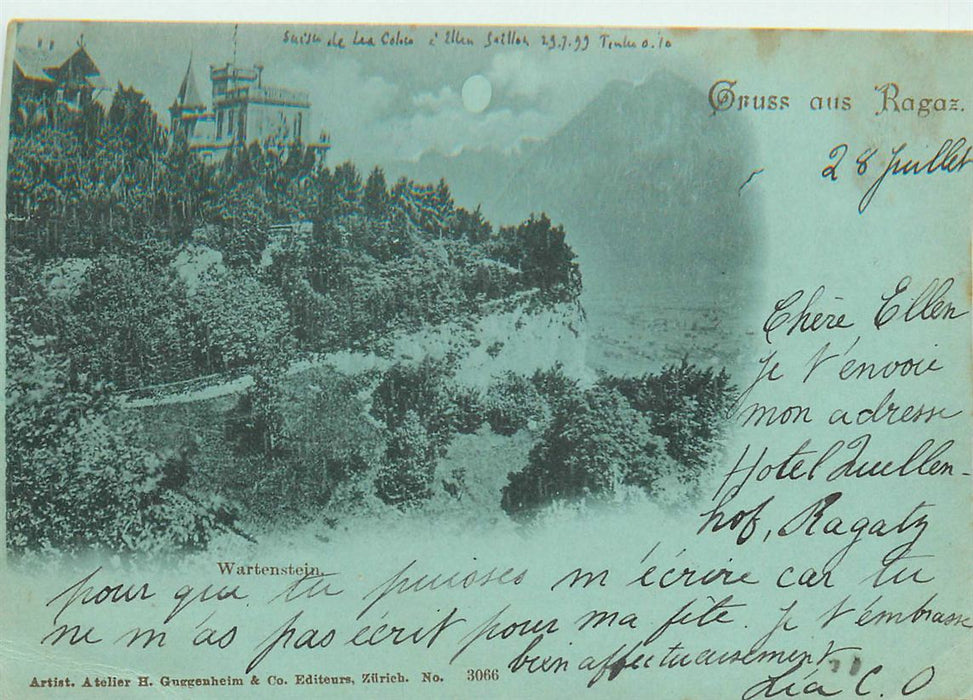 Suisse de Lea Colin à Ellen 29.7.99
Gruss aus Ragaz.
28 Juillet
Chère Ellen
Je t'envoie
mon adresse
Hotel Quellen-
hof, Ragatz
Wartenstein.
pour que tu puisses m'écrire car tu
ne m'as pas écrit pour ma fête. Je t'embrasse
bien affectueusement
Léa C. O
Artist. Atelier H. Guggenheim & Co. Editeurs, Zürich. No. 3066